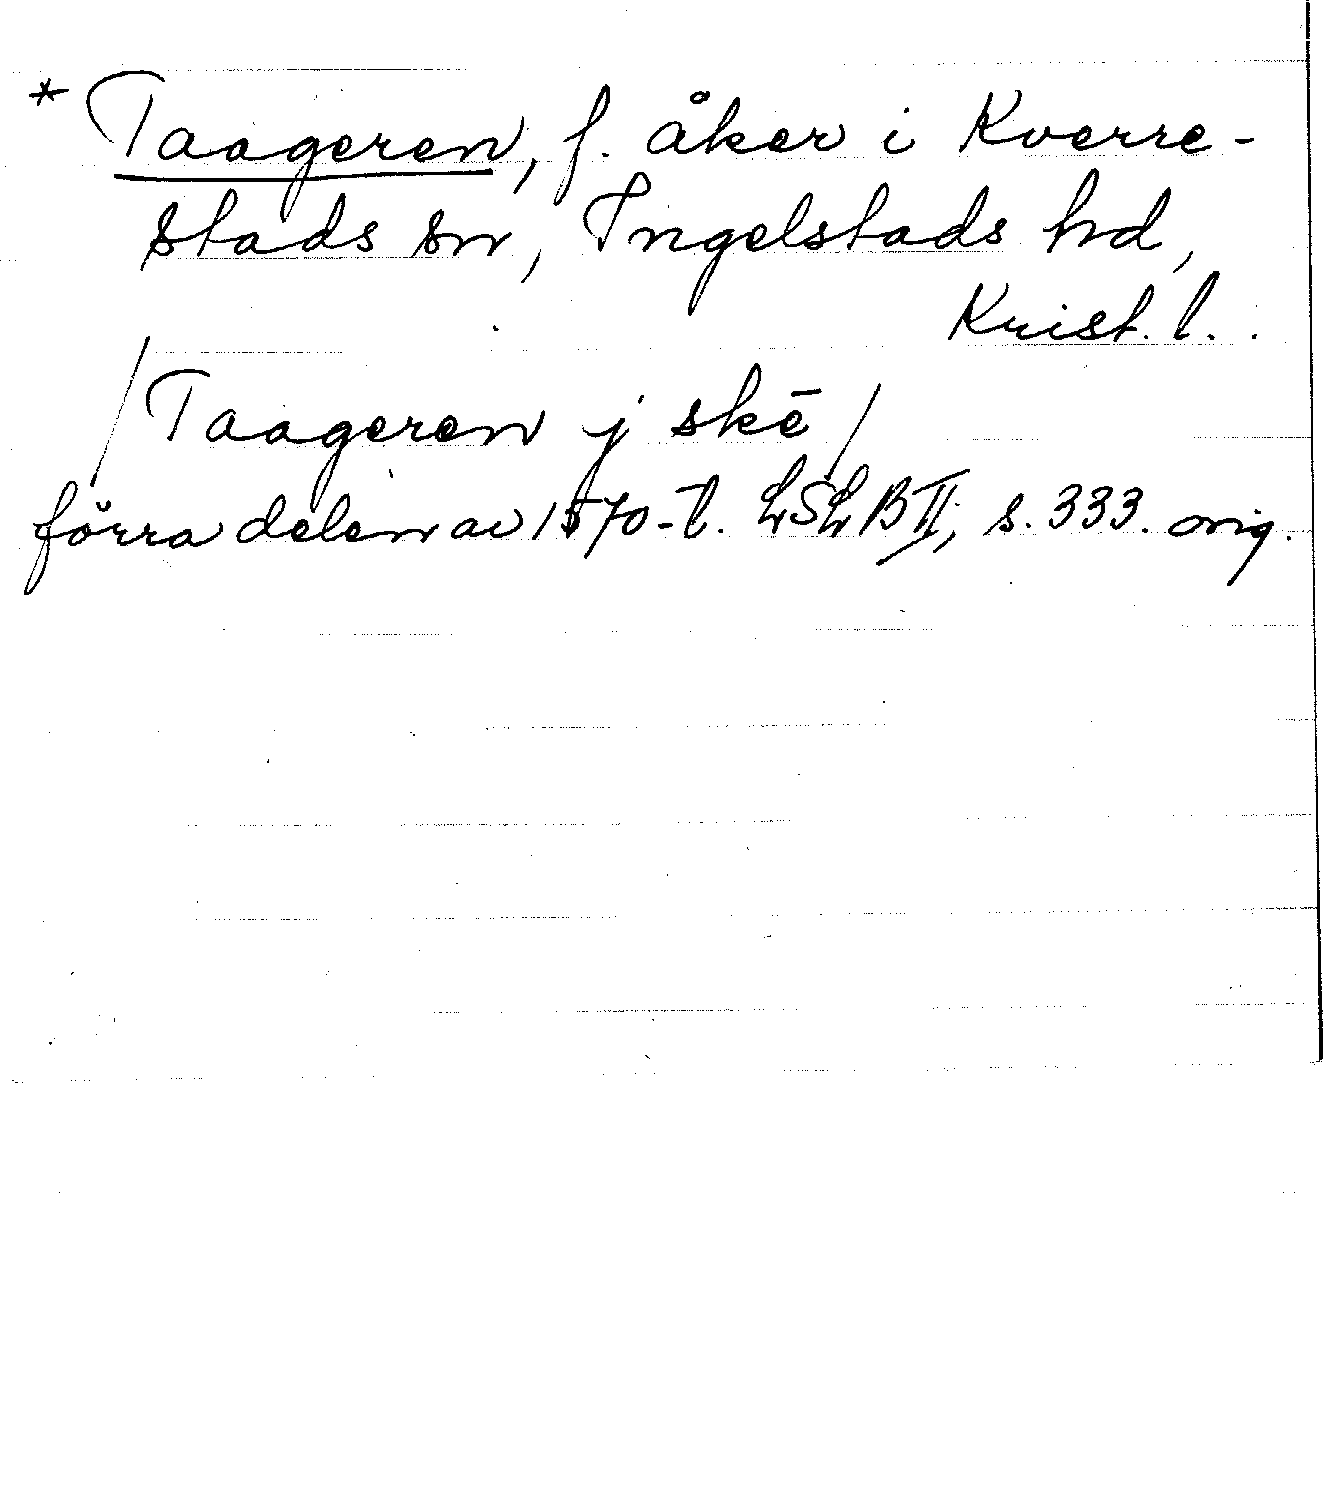 * Taageren, f. åker i Kverre-
stads sn, Ingelstads hd,
Krist. l.
/Taageren j skē/
förra delen av 1570-t. LSLB II, s. 333. orig.